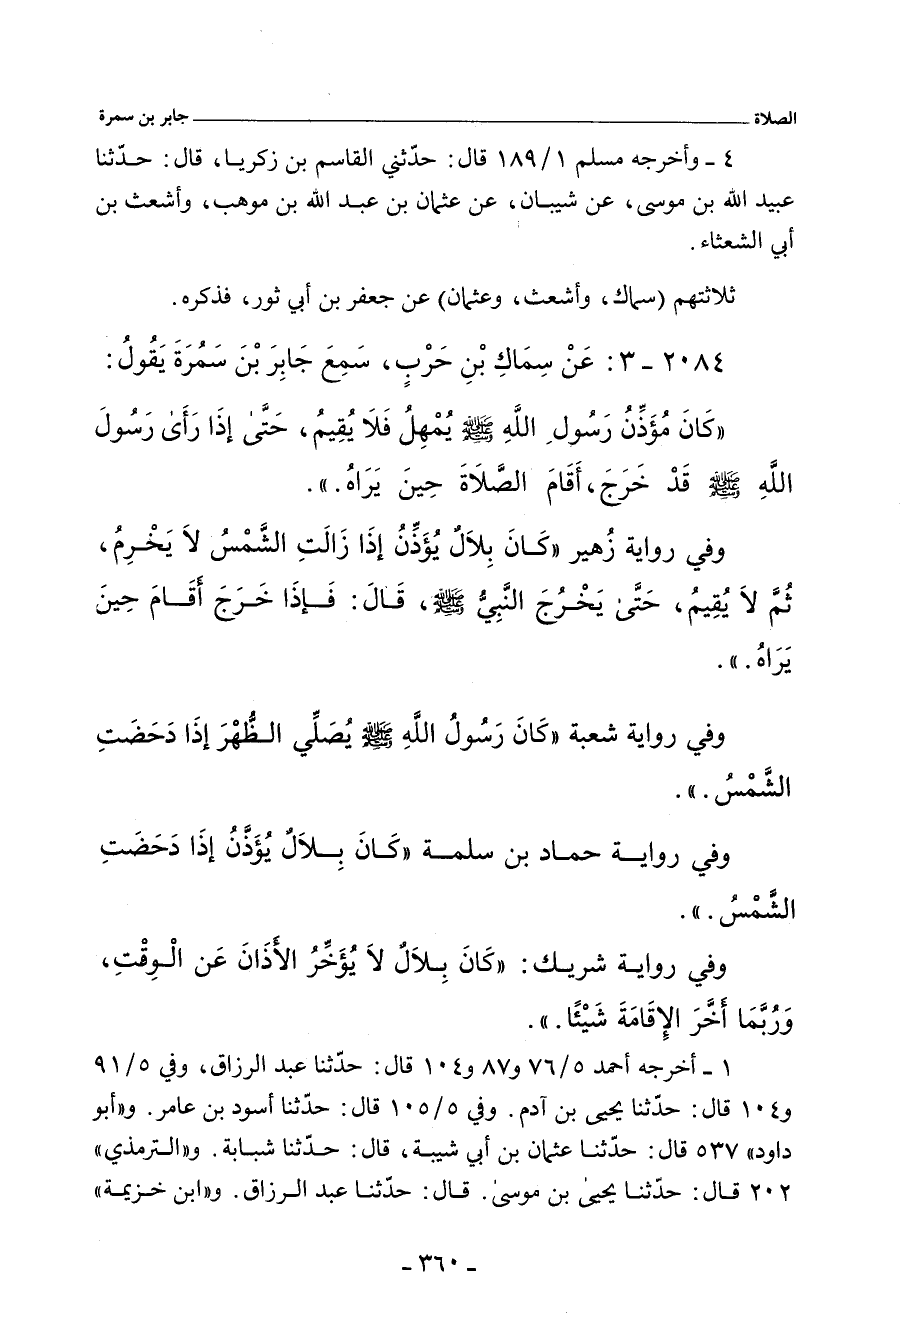 الصلاة ــــــــــــــــــــــــــــــــ جابر بن سمرة
٤ ـ وأخرجه مسلم ١/ ١٨٩ قال: حدّثني القاسم بن زكريا، قال: حدّثنا
عبيد الله بن موسى، عن شيبان، عن عثمان بن عبد الله بن موهب، وأشعث بن
أبي الشعثاء.
ثلاثتهم (سماك، وأشعث، وعثمان) عن جعفر بن أبي ثور، فذكره.
٢٠٨٤ ـ ٣: عَنْ سِمَاكِ بْنِ حَرْبٍ، سَمِعَ جَابِرَ بْنَ سَمُرَةَ يَقُولُ:
«كَانَ مُؤَذِّنُ رَسُولِ اللَّهِ ﷺ يُمْهِلُ فَلَا يُقِيمُ، حَتَّىٰ إذَا رَأَىٰ رَسُولَ
اللَّهِ ﷺ قَدْ خَرَجَ، أَقَامَ الصَّلَاةَ حِينَ يَرَاهُ.».
وفي رواية زُهير «كَانَ بِلَالٌ يُؤَذِّنُ إذَا زَالَتِ الشَّمْسُ لاَ يَخْرِمُ،
ثُمَّ لاَ يُقِيمُ، حَتَّىٰ يَخْرُجَ النَّبِيُّ ﷺ، قَالَ: فَإذَا خَرَجَ أَقَامَ حِينَ
يَرَاهُ.».
وفي رواية شعبة «كَانَ رَسُولُ اللَّهِ ﷺ يُصَلِّي الظُّهْرَ إذَا دَحَضَتِ
الشَّمْسُ.».
وفي رواية حماد بن سلمة «كَانَ بِلاَلٌ يُؤَذِّنُ إذَا دَحَضَتِ
الشَّمْسُ.».
وفي رواية شريك: «كَانَ بِلاَلٌ لاَ يُؤَخِّرُ الأَذَانَ عَنِ الْوِقْتِ،
وَرُبَّمَا أَخَّرَ الإِقَامَةَ شَيْئًا.».
١ ـ أخرجه أحمد ٥/ ٧٦ و٨٧ و١٠٤ قال: حدّثنا عبد الرزاق، وفي ٥/ ٩١
و١٠٤ قال: حدّثنا يحيى بن آدم. وفي ٥/ ١٠٥ قال: حدّثنا أسود بن عامر. و«أبو
داود» ٥٣٧ قال: حدّثنا عثمان بن أبي شيبة، قال: حدّثنا شبابة. و«الترمذي»
٢٠٢ قال: حدّثنا يحيىٰ بن موسىٰ. قال: حدّثنا عبد الرزاق. و«ابن خزيمة»
ـ ٣٦٠ ـ